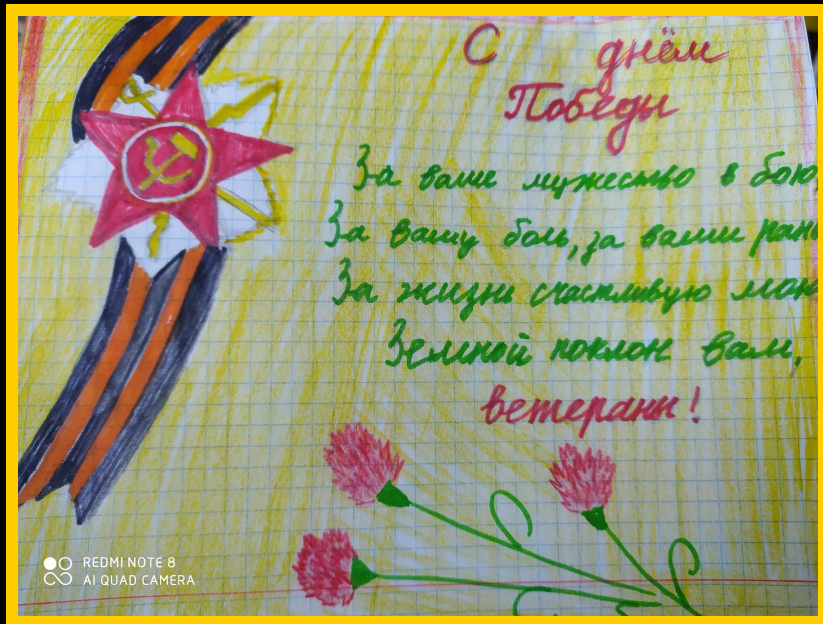 С днём
Победы
За ваше мужество в бою,
За вашу боль, за ваши ран
За жизнь счастливую мою
Земной поклон вам,
ветераны!
REDMI NOTE 8
AI QUAD CAMERA